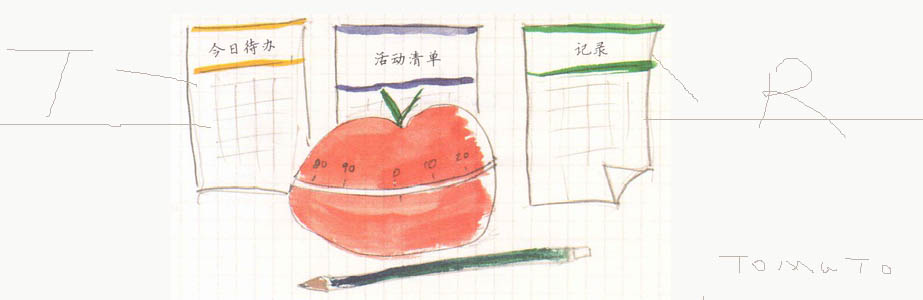 今日待办
活动清单
记录
T
R
80 90 0 10 20
TOMATO